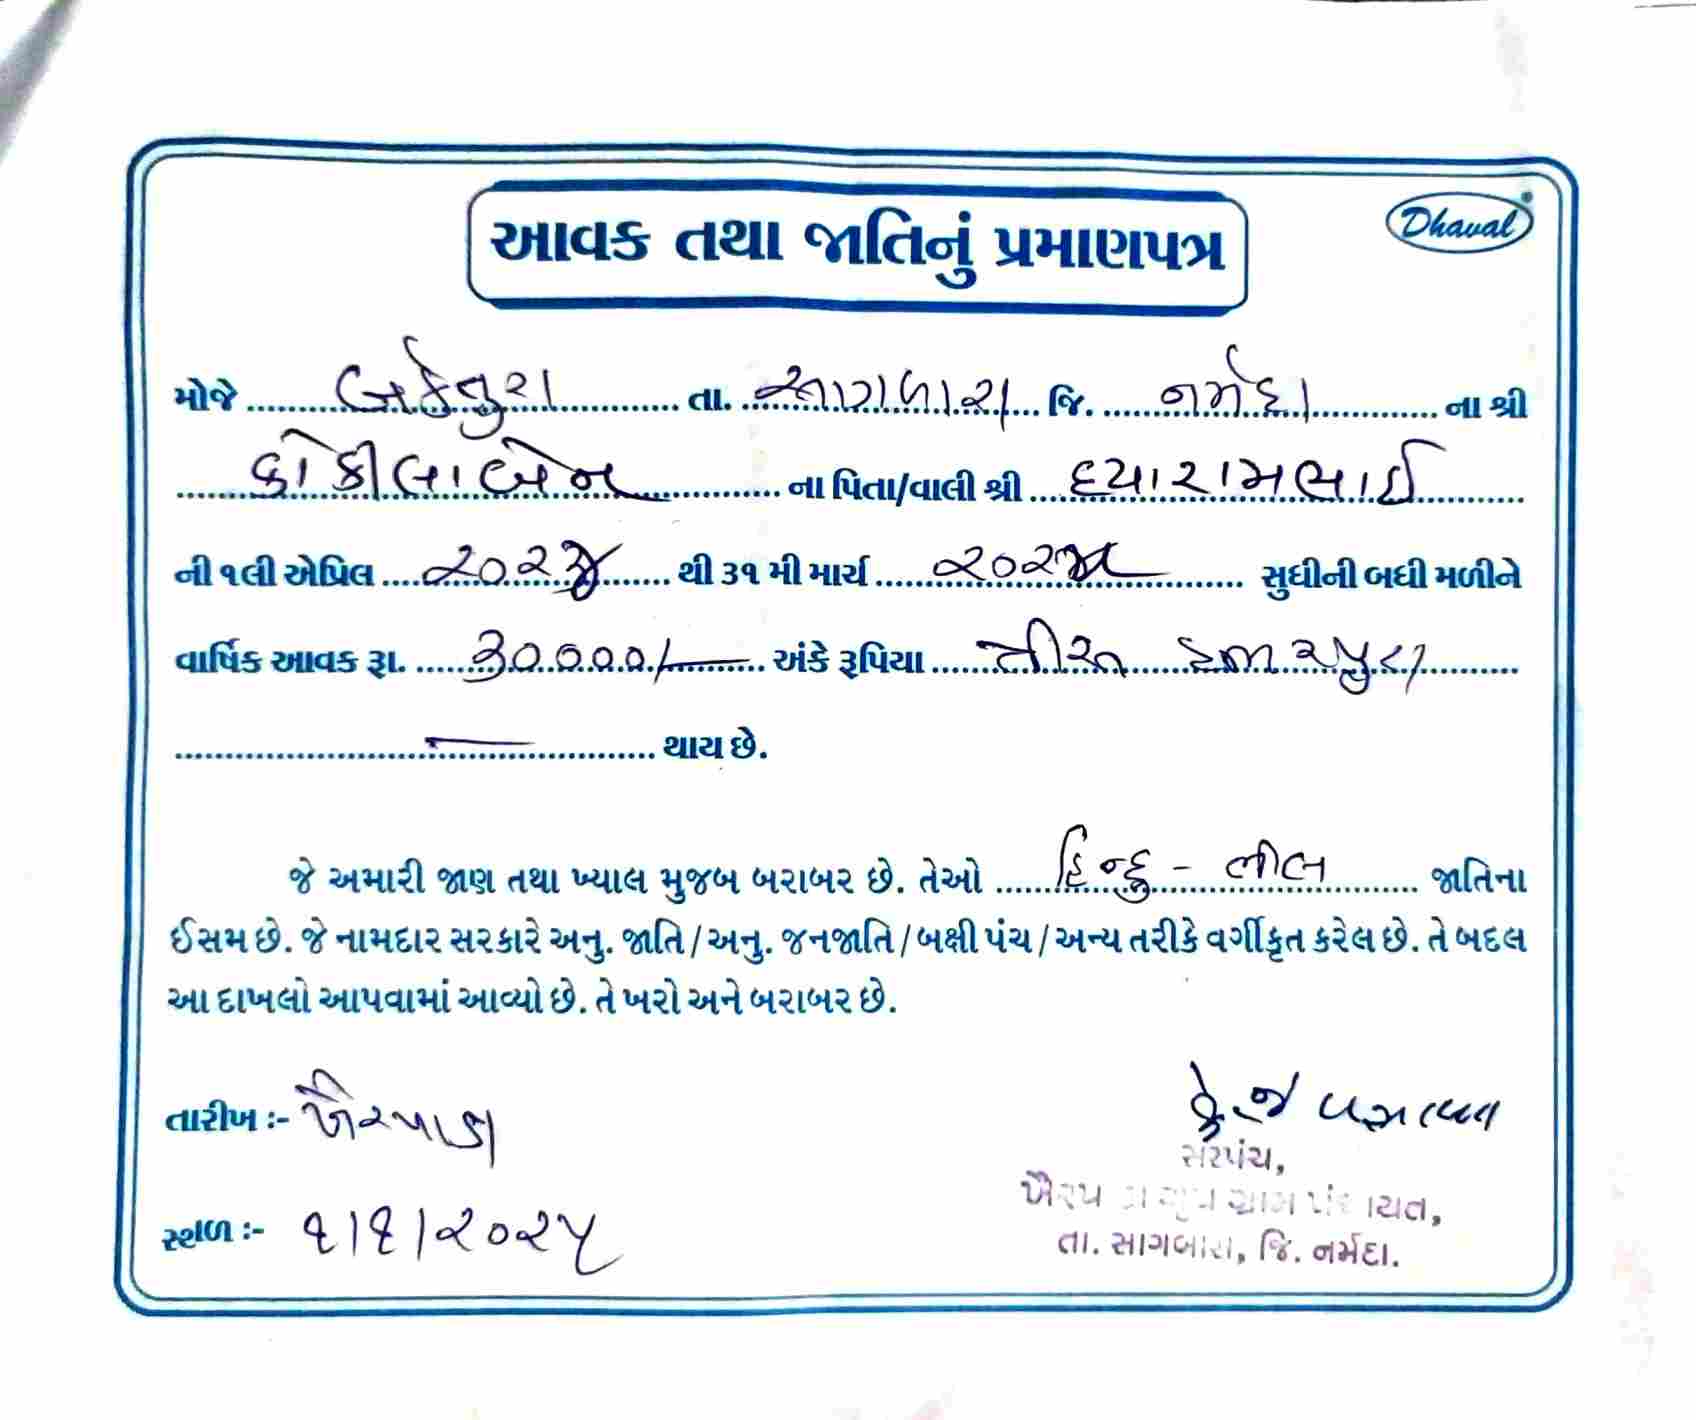 Dhaval
આવક તથા જાતિનું પ્રમાણપત્ર
મોજે તા. સાગબારા જિ. નર્મદા ના શ્રી
કોકીલાબેન ના પિતા/વાલી શ્રી દયારામભાઈ
ની ૧લી એપ્રિલ થી ૩૧ મી માર્ચ સુધીની બધી મળીને
વાર્ષિક આવક રૂા. ૩૦૦૦૦/- અંકે રૂપિયા ત્રીસ હજાર પુરા
થાય છે.
જે અમારી જાણ તથા ખ્યાલ મુજબ બરાબર છે. તેઓ હિન્દુ - ભીલ જાતિના
ઈસમ છે. જે નામદાર સરકારે અનુ. જાતિ/અનુ. જનજાતિ/બક્ષી પંચ/અન્ય તરીકે વર્ગીકૃત કરેલ છે. તે બદલ
આ દાખલો આપવામાં આવ્યો છે. તે ખરો અને બરાબર છે.
તારીખ :- ખૈરપાડા
સ્થળ :- ૧/૧/૨૦૨૫
સરપંચ,
ગ્રામ પંચાયત,
તા. સાગબારા, જિ. નર્મદા.